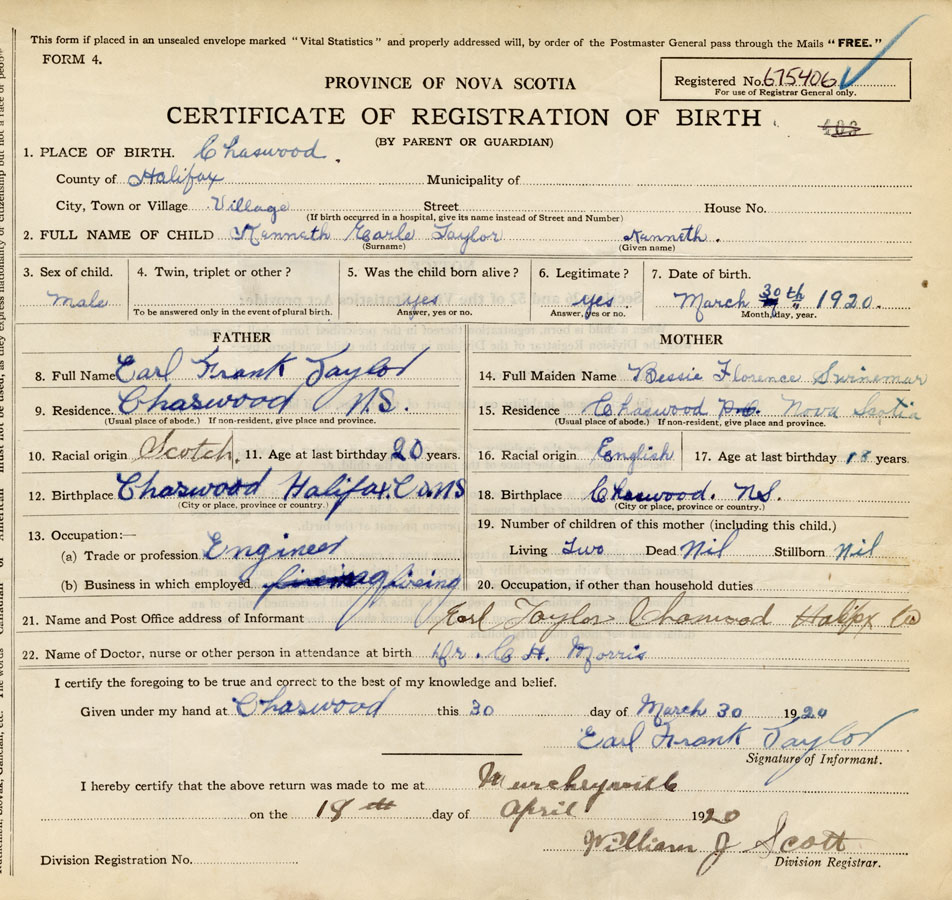 This form if placed in an unsealed envelope marked "Vital Statistics" and properly addressed will, by order of the Postmaster General pass through the Mails "FREE."
FORM 4.
Registered No. 675406
For use of Registrar General only.
PROVINCE OF NOVA SCOTIA
CERTIFICATE OF REGISTRATION OF BIRTH
(BY PARENT OR GUARDIAN)
1. PLACE OF BIRTH. Chaswood.
County of Halifax Municipality of
City, Town or Village Village Street House No.
(If birth occurred in a hospital, give its name instead of Street and Number)
2. FULL NAME OF CHILD Kenneth Earle Taylor Kenneth.
(Surname) (Given name)
3. Sex of child. 4. Twin, triplet or other? 5. Was the child born alive? 6. Legitimate? 7. Date of birth.
Male yes yes March 30th 1920.
To be answered only in the event of plural birth. Answer, yes or no. Answer, yes or no. Month, day, year.
FATHER
8. Full Name Earl Frank Taylor
9. Residence. Chaswood N.S.
(Usual place of abode.) If non-resident, give place and province.
10. Racial origin Scotch. 11. Age at last birthday 20 years.
12. Birthplace Chaswood Halifax Co NS
(City or place, province or country.)
13. Occupation:—
(a) Trade or profession Engineer
(b) Business in which employed
MOTHER
14. Full Maiden Name Bessie Florence Swinemar
15. Residence Chaswood Nova Scotia
(Usual place of abode.) If non-resident, give place and province.
16. Racial origin English 17. Age at last birthday 18 years.
18. Birthplace Chaswood. N.S.
(City or place, province or country.)
19. Number of children of this mother (including this child.)
Living Two Dead Nil Stillborn Nil
20. Occupation, if other than household duties
21. Name and Post Office address of Informant Earl Taylor Chaswood Halifx Co
22. Name of Doctor, nurse or other person in attendance at birth Dr. C H. Morris
I certify the foregoing to be true and correct to the best of my knowledge and belief.
Given under my hand at Chaswood this 30 day of March 30 1920
Earl Frank Taylor
Signature of Informant.
I hereby certify that the above return was made to me at
on the 18th day of April 1920
William J Scott
Division Registration No. Division Registrar.